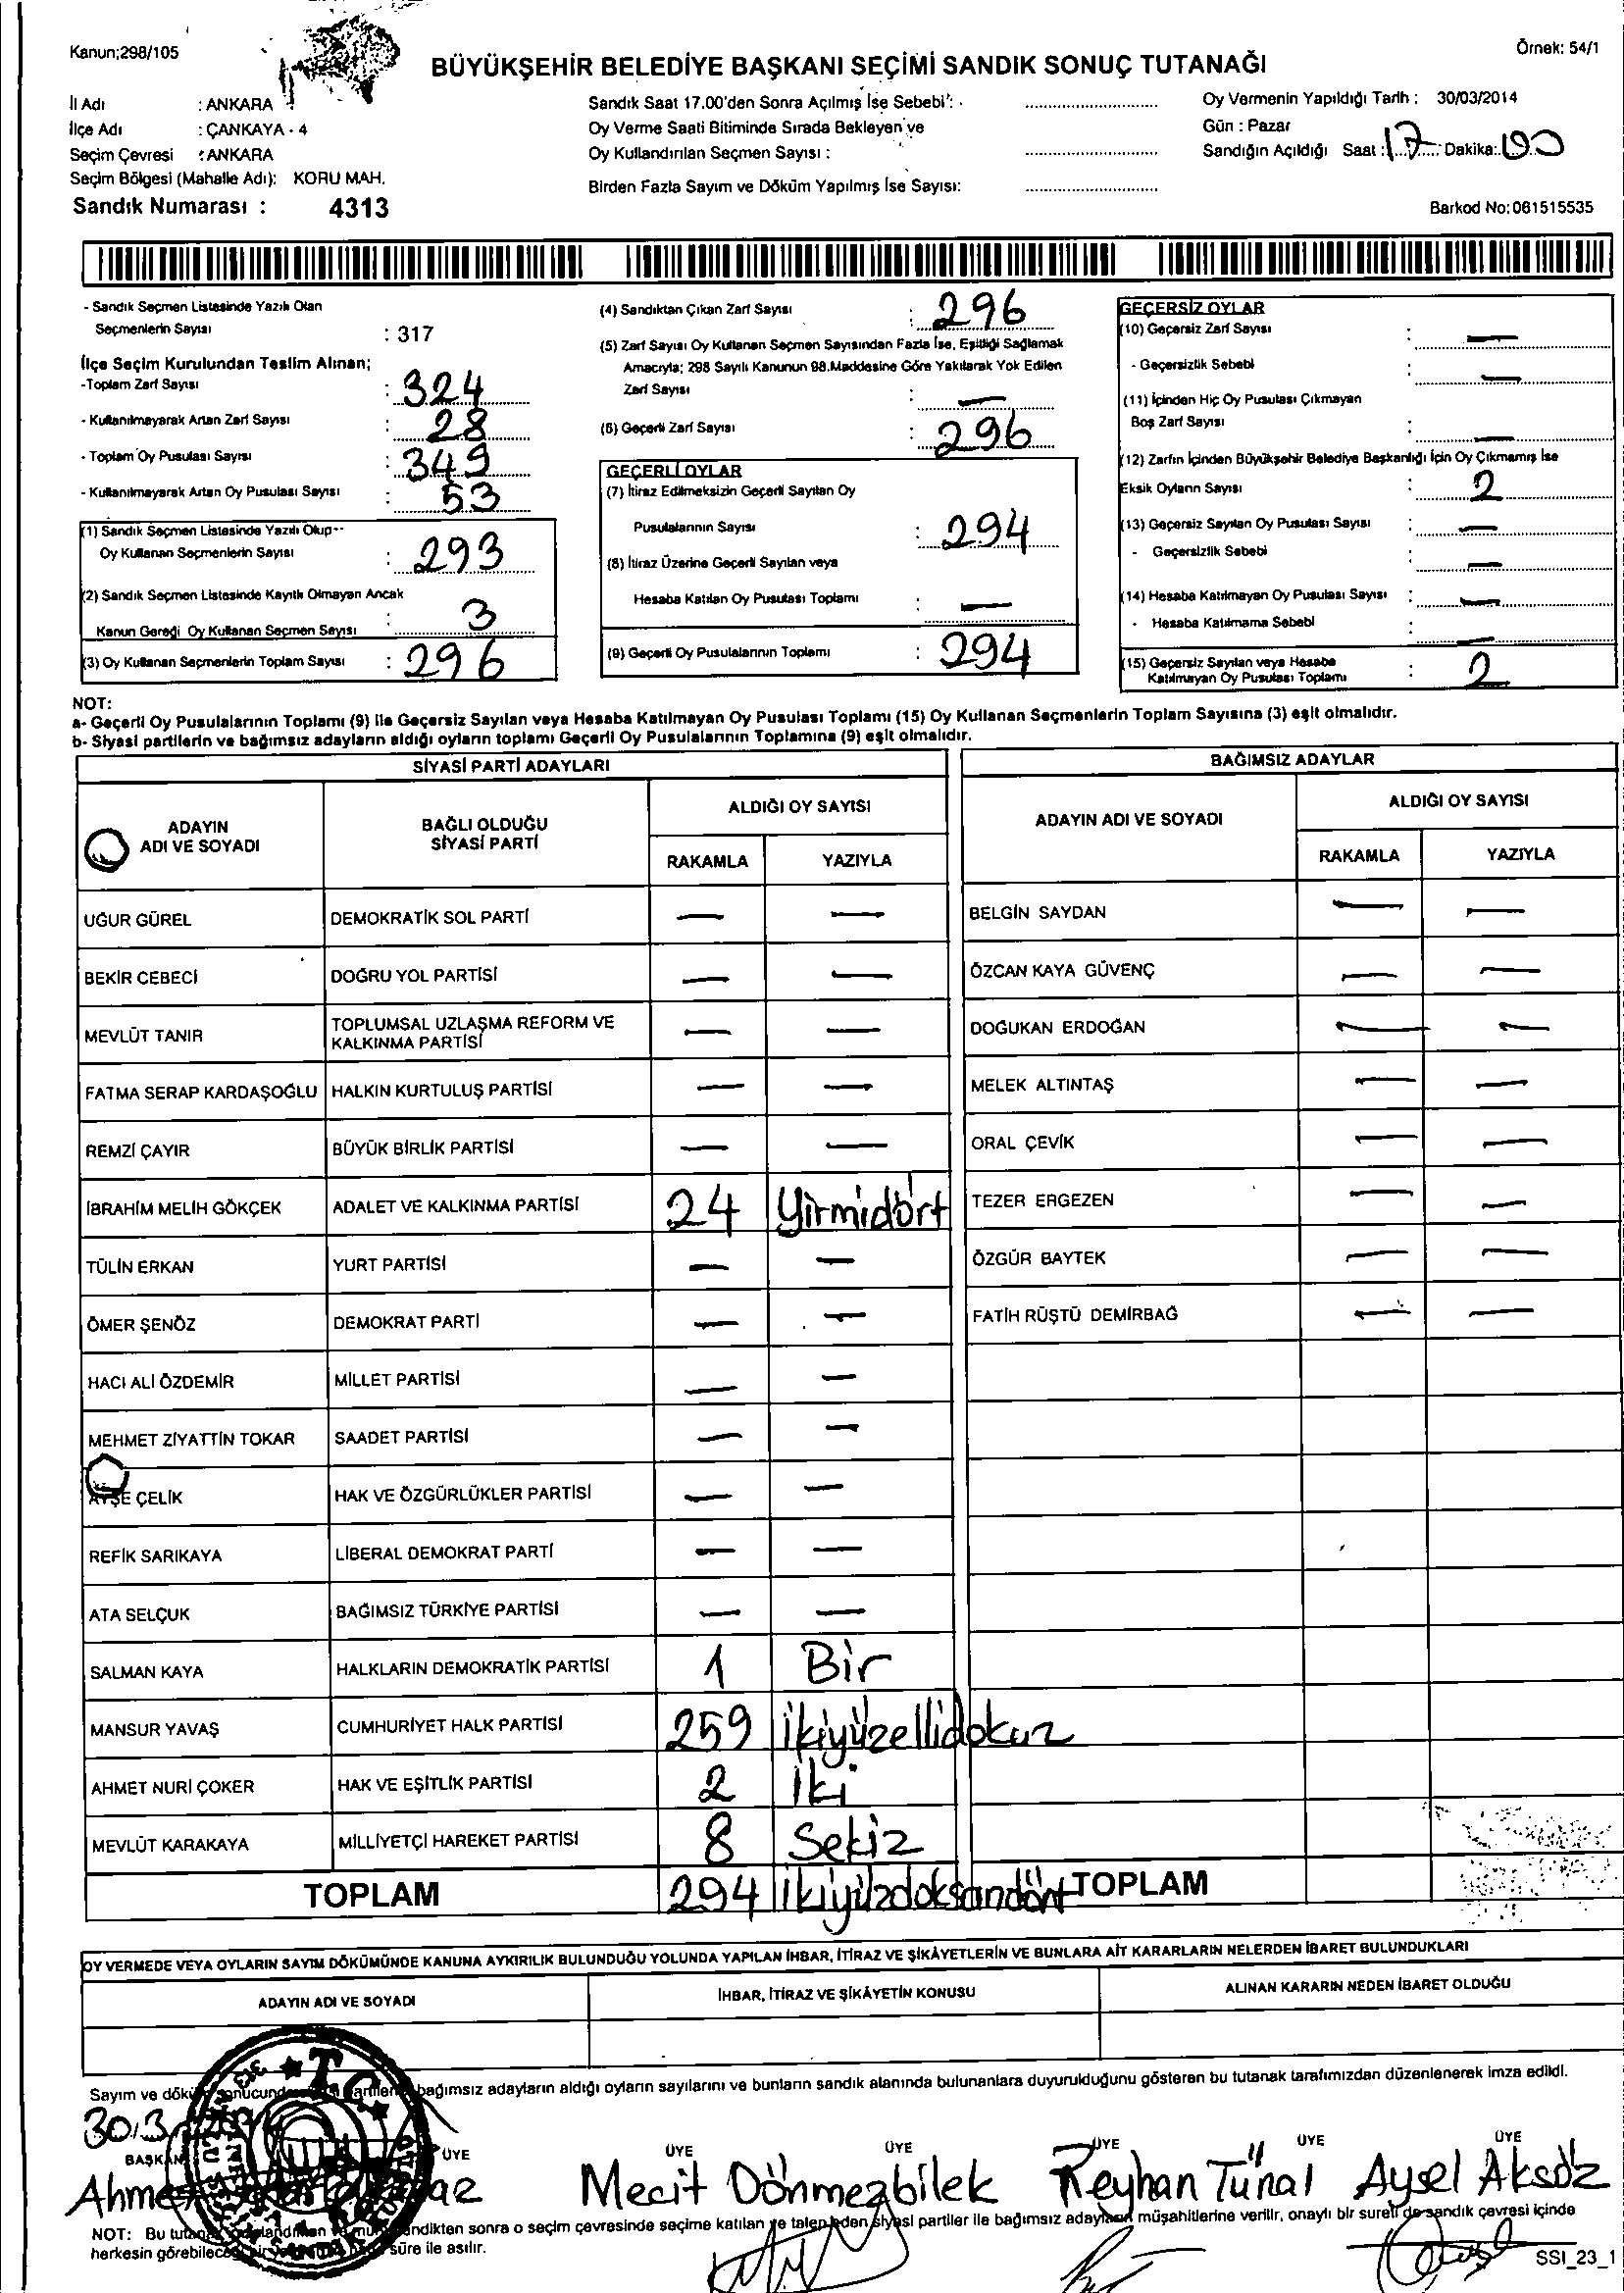 Kanun;298/105
BÜYÜKŞEHİR BELEDİYE BAŞKANI SEÇİMİ SANDIK SONUÇ TUTANAĞI
Örnek: 54/1
İl Adı : ANKARA
İlçe Adı : ÇANKAYA - 4
Seçim Çevresi : ANKARA
Seçim Bölgesi (Mahalle Adı): KORU MAH.
Sandık Numarası : 4313
Sandık Saat 17.00'den Sonra Açılmış İse Sebebi :
Oy Verme Saati Bitiminde Sırada Bekleyen ve
Oy Kullandırılan Seçmen Sayısı :
Birden Fazla Sayım ve Döküm Yapılmış İse Sayısı:
Oy Vermenin Yapıldığı Tarih : 30/03/2014
Gün : Pazar
Sandığın Açıldığı Saat : 17 : Dakika: 00
Barkod No: 061515535
- Sandık Seçmen Listesinde Yazılı Olan
Seçmenlerin Sayısı : 317
İlçe Seçim Kurulundan Teslim Alınan;
-Toplam Zarf Sayısı : 324
- Kullanılmayarak Artan Zarf Sayısı : 28
- Toplam Oy Pusulası Sayısı : 349
- Kullanılmayarak Artan Oy Pusulası Sayısı : 53
(1) Sandık Seçmen Listesinde Yazılı Olup
Oy Kullanan Seçmenlerin Sayısı : 293
(2) Sandık Seçmen Listesinde Kayıtlı Olmayan Ancak
Kanun Gereği Oy Kullanan Seçmen Sayısı : 3
(3) Oy Kullanan Seçmenlerin Toplam Sayısı : 296
(4) Sandıktan Çıkan Zarf Sayısı : 296
(5) Zarf Sayısı Oy Kullanan Seçmen Sayısından Fazla İse, Eşitliği Sağlamak
Amacıyla; 298 Sayılı Kanunun 98.Maddesine Göre Yakılarak Yok Edilen
Zarf Sayısı : —
(6) Geçerli Zarf Sayısı : 296
GEÇERLİ OYLAR
(7) İtiraz Edilmeksizin Geçerli Sayılan Oy
Pusulalarının Sayısı : 294
(8) İtiraz Üzerine Geçerli Sayılan veya
Hesaba Katılan Oy Pusulası Toplamı : —
(9) Geçerli Oy Pusulalarının Toplamı : 294
GEÇERSİZ OYLAR
(10) Geçersiz Zarf Sayısı : —
- Geçersizlik Sebebi : —
(11) İçinden Hiç Oy Pusulası Çıkmayan
Boş Zarf Sayısı : —
(12) Zarfın İçinden Büyükşehir Belediye Başkanlığı İçin Oy Çıkmamış İse
Eksik Oyların Sayısı : 2
(13) Geçersiz Sayılan Oy Pusulası Sayısı : —
- Geçersizlik Sebebi : —
(14) Hesaba Katılmayan Oy Pusulası Sayısı : —
- Hesaba Katılmama Sebebi : —
(15) Geçersiz Sayılan veya Hesaba
Katılmayan Oy Pusulası Toplamı : 2
NOT:
a- Geçerli Oy Pusulalarının Toplamı (9) ile Geçersiz Sayılan veya Hesaba Katılmayan Oy Pusulası Toplamı (15) Oy Kullanan Seçmenlerin Toplam Sayısına (3) eşit olmalıdır.
b- Siyasi partilerin ve bağımsız adayların aldığı oyların toplamı Geçerli Oy Pusulalarının Toplamına (9) eşit olmalıdır.
SİYASİ PARTİ ADAYLARI
ADAYIN ADI VE SOYADI
BAĞLI OLDUĞU SİYASİ PARTİ
ALDIĞI OY SAYISI
RAKAMLA YAZIYLA
UĞUR GÜREL DEMOKRATİK SOL PARTİ — —
BEKİR CEBECİ DOĞRU YOL PARTİSİ — —
MEVLÜT TANIR TOPLUMSAL UZLAŞMA REFORM VE KALKINMA PARTİSİ — —
FATMA SERAP KARDAŞOĞLU HALKIN KURTULUŞ PARTİSİ — —
REMZİ ÇAYIR BÜYÜK BİRLİK PARTİSİ — —
İBRAHİM MELİH GÖKÇEK ADALET VE KALKINMA PARTİSİ 24 Yirmidört
TÜLİN ERKAN YURT PARTİSİ — —
ÖMER ŞENÖZ DEMOKRAT PARTİ — —
HACI ALİ ÖZDEMİR MİLLET PARTİSİ — —
MEHMET ZİYATTİN TOKAR SAADET PARTİSİ — —
AYŞE ÇELİK HAK VE ÖZGÜRLÜKLER PARTİSİ — —
REFİK SARIKAYA LİBERAL DEMOKRAT PARTİ — —
ATA SELÇUK BAĞIMSIZ TÜRKİYE PARTİSİ — —
SALMAN KAYA HALKLARIN DEMOKRATİK PARTİSİ 1 Bir
MANSUR YAVAŞ CUMHURİYET HALK PARTİSİ 259 ikiyüzellidokuz
AHMET NURİ ÇOKER HAK VE EŞİTLİK PARTİSİ 2 iki
MEVLÜT KARAKAYA MİLLİYETÇİ HAREKET PARTİSİ 8 Sekiz
TOPLAM 294 ikiyüzdoksandört
BAĞIMSIZ ADAYLAR
ADAYIN ADI VE SOYADI
ALDIĞI OY SAYISI
RAKAMLA YAZIYLA
BELGİN SAYDAN — —
ÖZCAN KAYA GÜVENÇ — —
DOĞUKAN ERDOĞAN — —
MELEK ALTINTAŞ — —
ORAL ÇEVİK — —
TEZER ERGEZEN — —
ÖZGÜR BAYTEK — —
FATİH RÜŞTÜ DEMİRBAĞ — —
TOPLAM
OY VERMEDE VEYA OYLARIN SAYIM DÖKÜMÜNDE KANUNA AYKIRILIK BULUNDUĞU YOLUNDA YAPILAN İHBAR, İTİRAZ VE ŞİKÂYETLERİN VE BUNLARA AİT KARARLARIN NELERDEN İBARET BULUNDUKLARI
ADAYIN ADI VE SOYADI
İHBAR, İTİRAZ VE ŞİKÂYETİN KONUSU
ALINAN KARARIN NEDEN İBARET OLDUĞU
Sayım ve bağımsız adayların aldığı oyların sayılarını ve bunların sandık alanında bulunanlara duyurulduğunu gösteren bu tutanak tarafımızdan düzenlenerek imza edildi.
30.3.
BAŞKAN ÜYE ÜYE ÜYE ÜYE ÜYE ÜYE
Mecit Dönmezbilek Reyhan Tünal Aysel Aksöz
NOT: Bu sonra o seçim çevresinde seçime katılan ve talep eden siyasi partiler ile bağımsız adayların müşahitlerine verilir, onaylı bir sureti de sandık çevresi içinde
herkesin süre ile asılır.
SSI_23_1